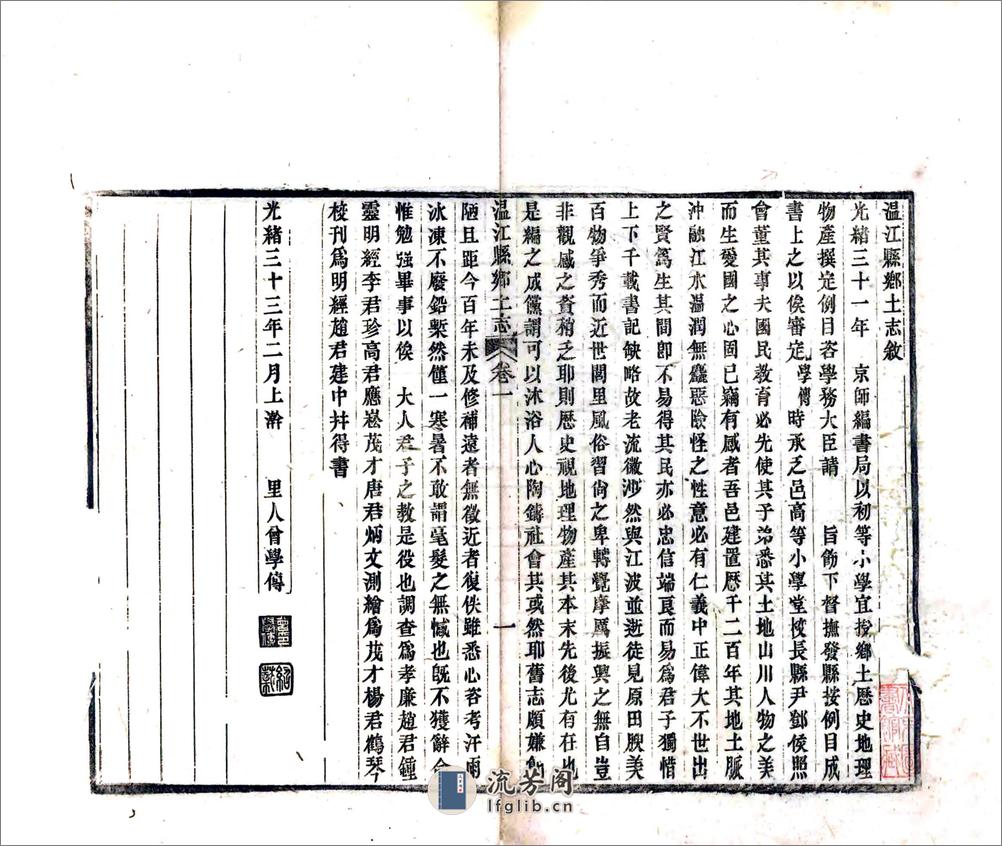 溫江縣鄉土志敘
光緒三十一年　京師編書局以初等小學宜授鄉土歷史地理
物產撰定例目咨學務大臣請　旨飭下督撫發縣按例目成
書上之以俟審定學傳時承乏邑高等小學堂校長縣尹鄧侯照
會董其事夫國民教育必先使其子弟悉其土地山川人物之美
而生愛國之心固已竊有感者吾邑建置歷千二百年其地土脈
沖融江水溫潤無麤惡險怪之性意必有仁義中正偉大不世出
之賢篤生其間卽不易得其民亦必忠信端良而易爲君子獨惜
上下千載書記缺略故老流微渺然與江波並逝徒見原田腴美
百物爭秀而近世閭里風俗習尙之卑轉覺摩厲振興之無自豈
非觀感之資稍乏耶則歷史視地理物產其本末先後尤有在也
是編之成儻謂可以沐浴人心陶鑄社會其或然耶舊志頗嫌
溫江縣鄉土志　卷一　一
陋且距今百年未及修補遠者無徵近者復佚雖悉心咨考汗雨
冰凍不廢鉛槧然僅一寒暑不敢謂毫髮之無憾也旣不獲辭令
惟勉强畢事以俟　大人君子之教是役也調查爲孝廉趙君鍾
靈明經李君珍高君應崧茂才唐君炳文測繪爲茂才楊君鶴琴
校刊爲明經趙君建中幷得書
光緒三十三年二月上澣　里人曾學傳
流芳阁
lfglib.cn